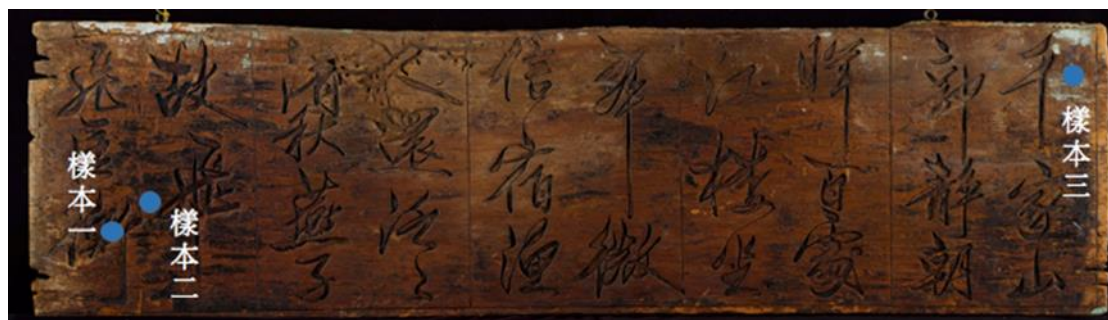 千家山
郭靜朝
暉百處
江樓坐
翠微
信宿漁
人還泛々
清秋燕子
故飛
飛
樣本一
樣本二
樣本三